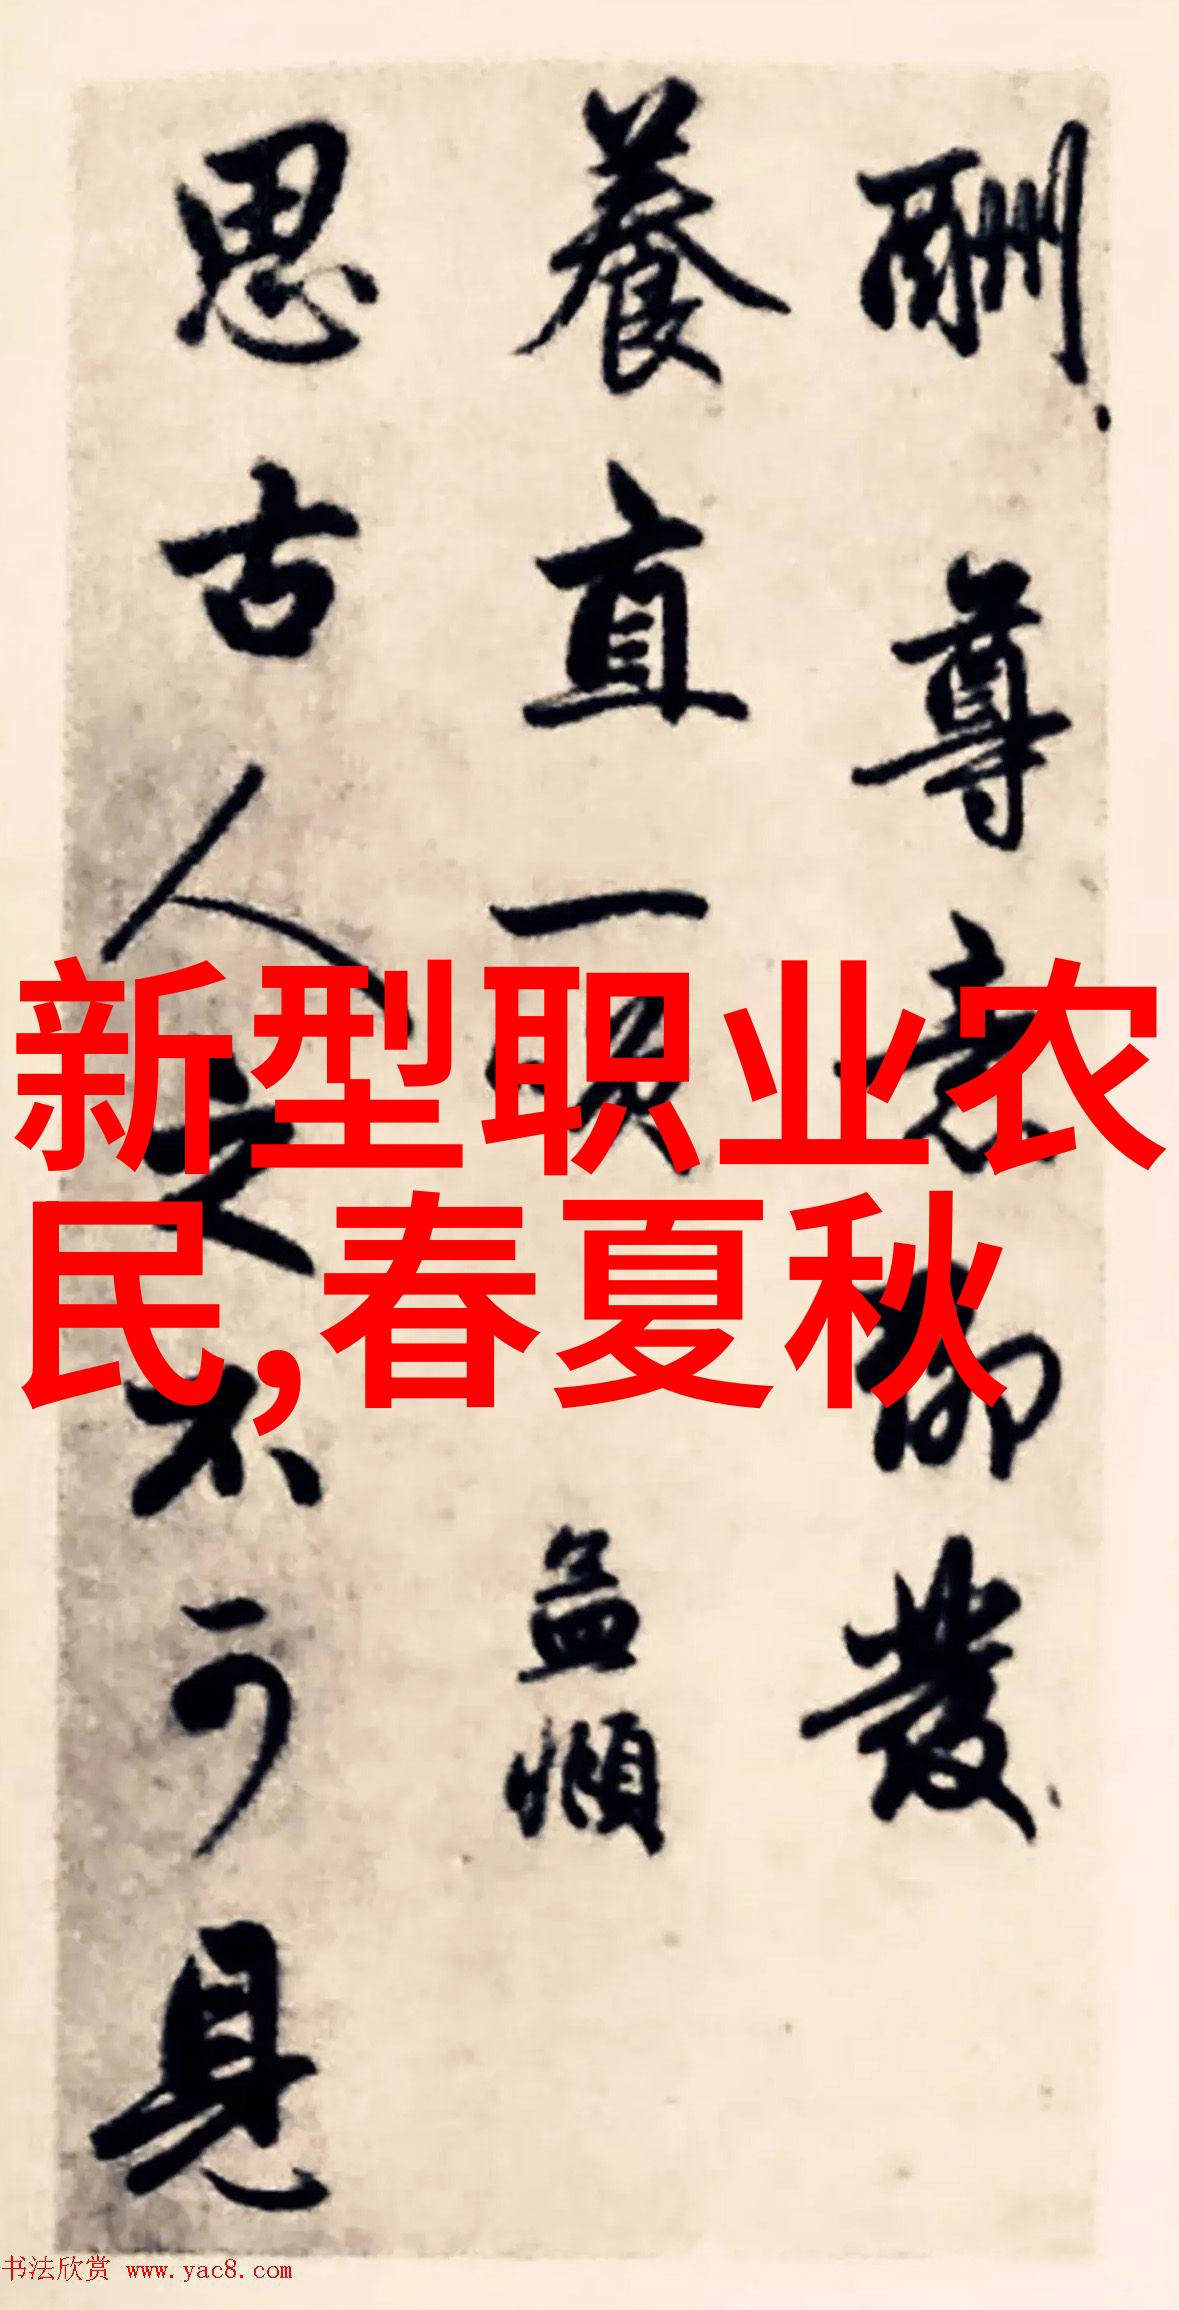 酬尊意聊發
養直一笑 孟頫
思古人之不可見
新型职业农
民,春夏秋
书法欣赏 www.yac8.com